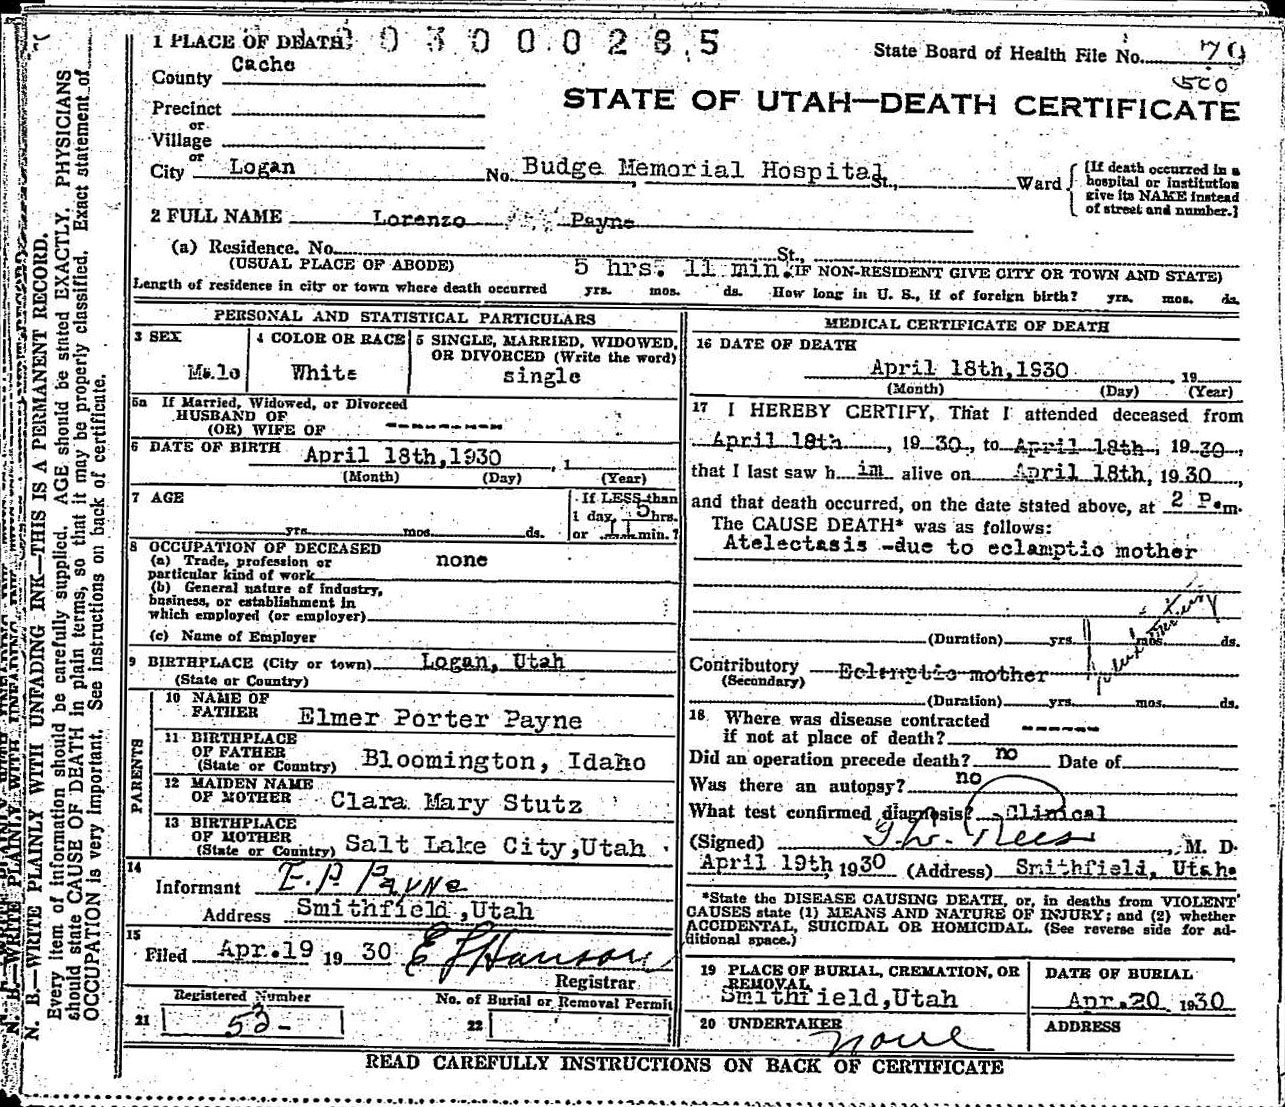 1 PLACE OF DEATH 0 3 0 0 0 2 8 5
State Board of Health File No. 79
500
County Cache
STATE OF UTAH—DEATH CERTIFICATE
Precinct
or
Village
or
City Logan No. Budge Memorial Hospital St., Ward
[If death occurred in a
hospital or institution
give its NAME instead
of street and number.]
2 FULL NAME Lorenzo Payne
(a) Residence. No. St.,
(USUAL PLACE OF ABODE) 5 hrs. 11 min. (IF NON-RESIDENT GIVE CITY OR TOWN AND STATE)
Length of residence in city or town where death occurred yrs. mos. ds. How long in U. S., if of foreign birth? yrs. mos. ds.
PERSONAL AND STATISTICAL PARTICULARS
3 SEX
Male
4 COLOR OR RACE
White
5 SINGLE, MARRIED, WIDOWED,
OR DIVORCED (Write the word)
single
5a If Married, Widowed, or Divorced
HUSBAND OF
(OR) WIFE OF ---------
6 DATE OF BIRTH April 18th,1930 , 1
(Month) (Day) (Year)
7 AGE
yrs. mos. ds.
If LESS than
1 day, 5 hrs.
or 11 min.?
8 OCCUPATION OF DECEASED
(a) Trade, profession or
particular kind of work none
(b) General nature of industry,
business, or establishment in
which employed (or employer)
(c) Name of Employer
9 BIRTHPLACE (City or town) Logan, Utah
(State or Country)
PARENTS
10 NAME OF
FATHER Elmer Porter Payne
11 BIRTHPLACE
OF FATHER
(State or Country) Bloomington, Idaho
12 MAIDEN NAME
OF MOTHER Clara Mary Stutz
13 BIRTHPLACE
OF MOTHER
(State or Country) Salt Lake City,Utah
14
Informant E.P. Payne
Address Smithfield,Utah
15
Filed Apr.19 19 30 E L Hanson
Registrar
Registered Number
21 52-
No. of Burial or Removal Permit
22
MEDICAL CERTIFICATE OF DEATH
16 DATE OF DEATH
April 18th,1930 , 19
(Month) (Day) (Year)
17 I HEREBY CERTIFY, That I attended deceased from
April 18th , 19 30, to April 18th, 19 30,
that I last saw h im alive on April 18th, 19 30,
and that death occurred, on the date stated above, at 2 P.m.
The CAUSE DEATH* was as follows:
Atelectasis -due to eclamptic mother
(Duration) yrs. mos. ds.
Contributory Eclamptic mother
(Secondary)
(Duration) yrs. mos. ds.
18 Where was disease contracted
if not at place of death? ------
Did an operation precede death? no Date of
Was there an autopsy? no
What test confirmed diagnosis? Clinical
(Signed) G.L. Rees , M. D.
April 19th, 19 30 (Address) Smithfield, Utah.
*State the DISEASE CAUSING DEATH, or, in deaths from VIOLENT
CAUSES state (1) MEANS AND NATURE OF INJURY; and (2) whether
ACCIDENTAL, SUICIDAL OR HOMICIDAL. (See reverse side for ad-
ditional space.)
19 PLACE OF BURIAL, CREMATION, OR
REMOVAL
Smithfield,Utah
DATE OF BURIAL
Apr.20 1930
20 UNDERTAKER
none
ADDRESS
READ CAREFULLY INSTRUCTIONS ON BACK OF CERTIFICATE
N. B.—WRITE PLAINLY WITH UNFADING INK—THIS IS A PERMANENT RECORD.
Every item of information should be carefully supplied. AGE should be stated EXACTLY. PHYSICIANS
should state CAUSE OF DEATH in plain terms, so that it may be properly classified. Exact statement of
OCCUPATION is very important. See instructions on back of certificate.